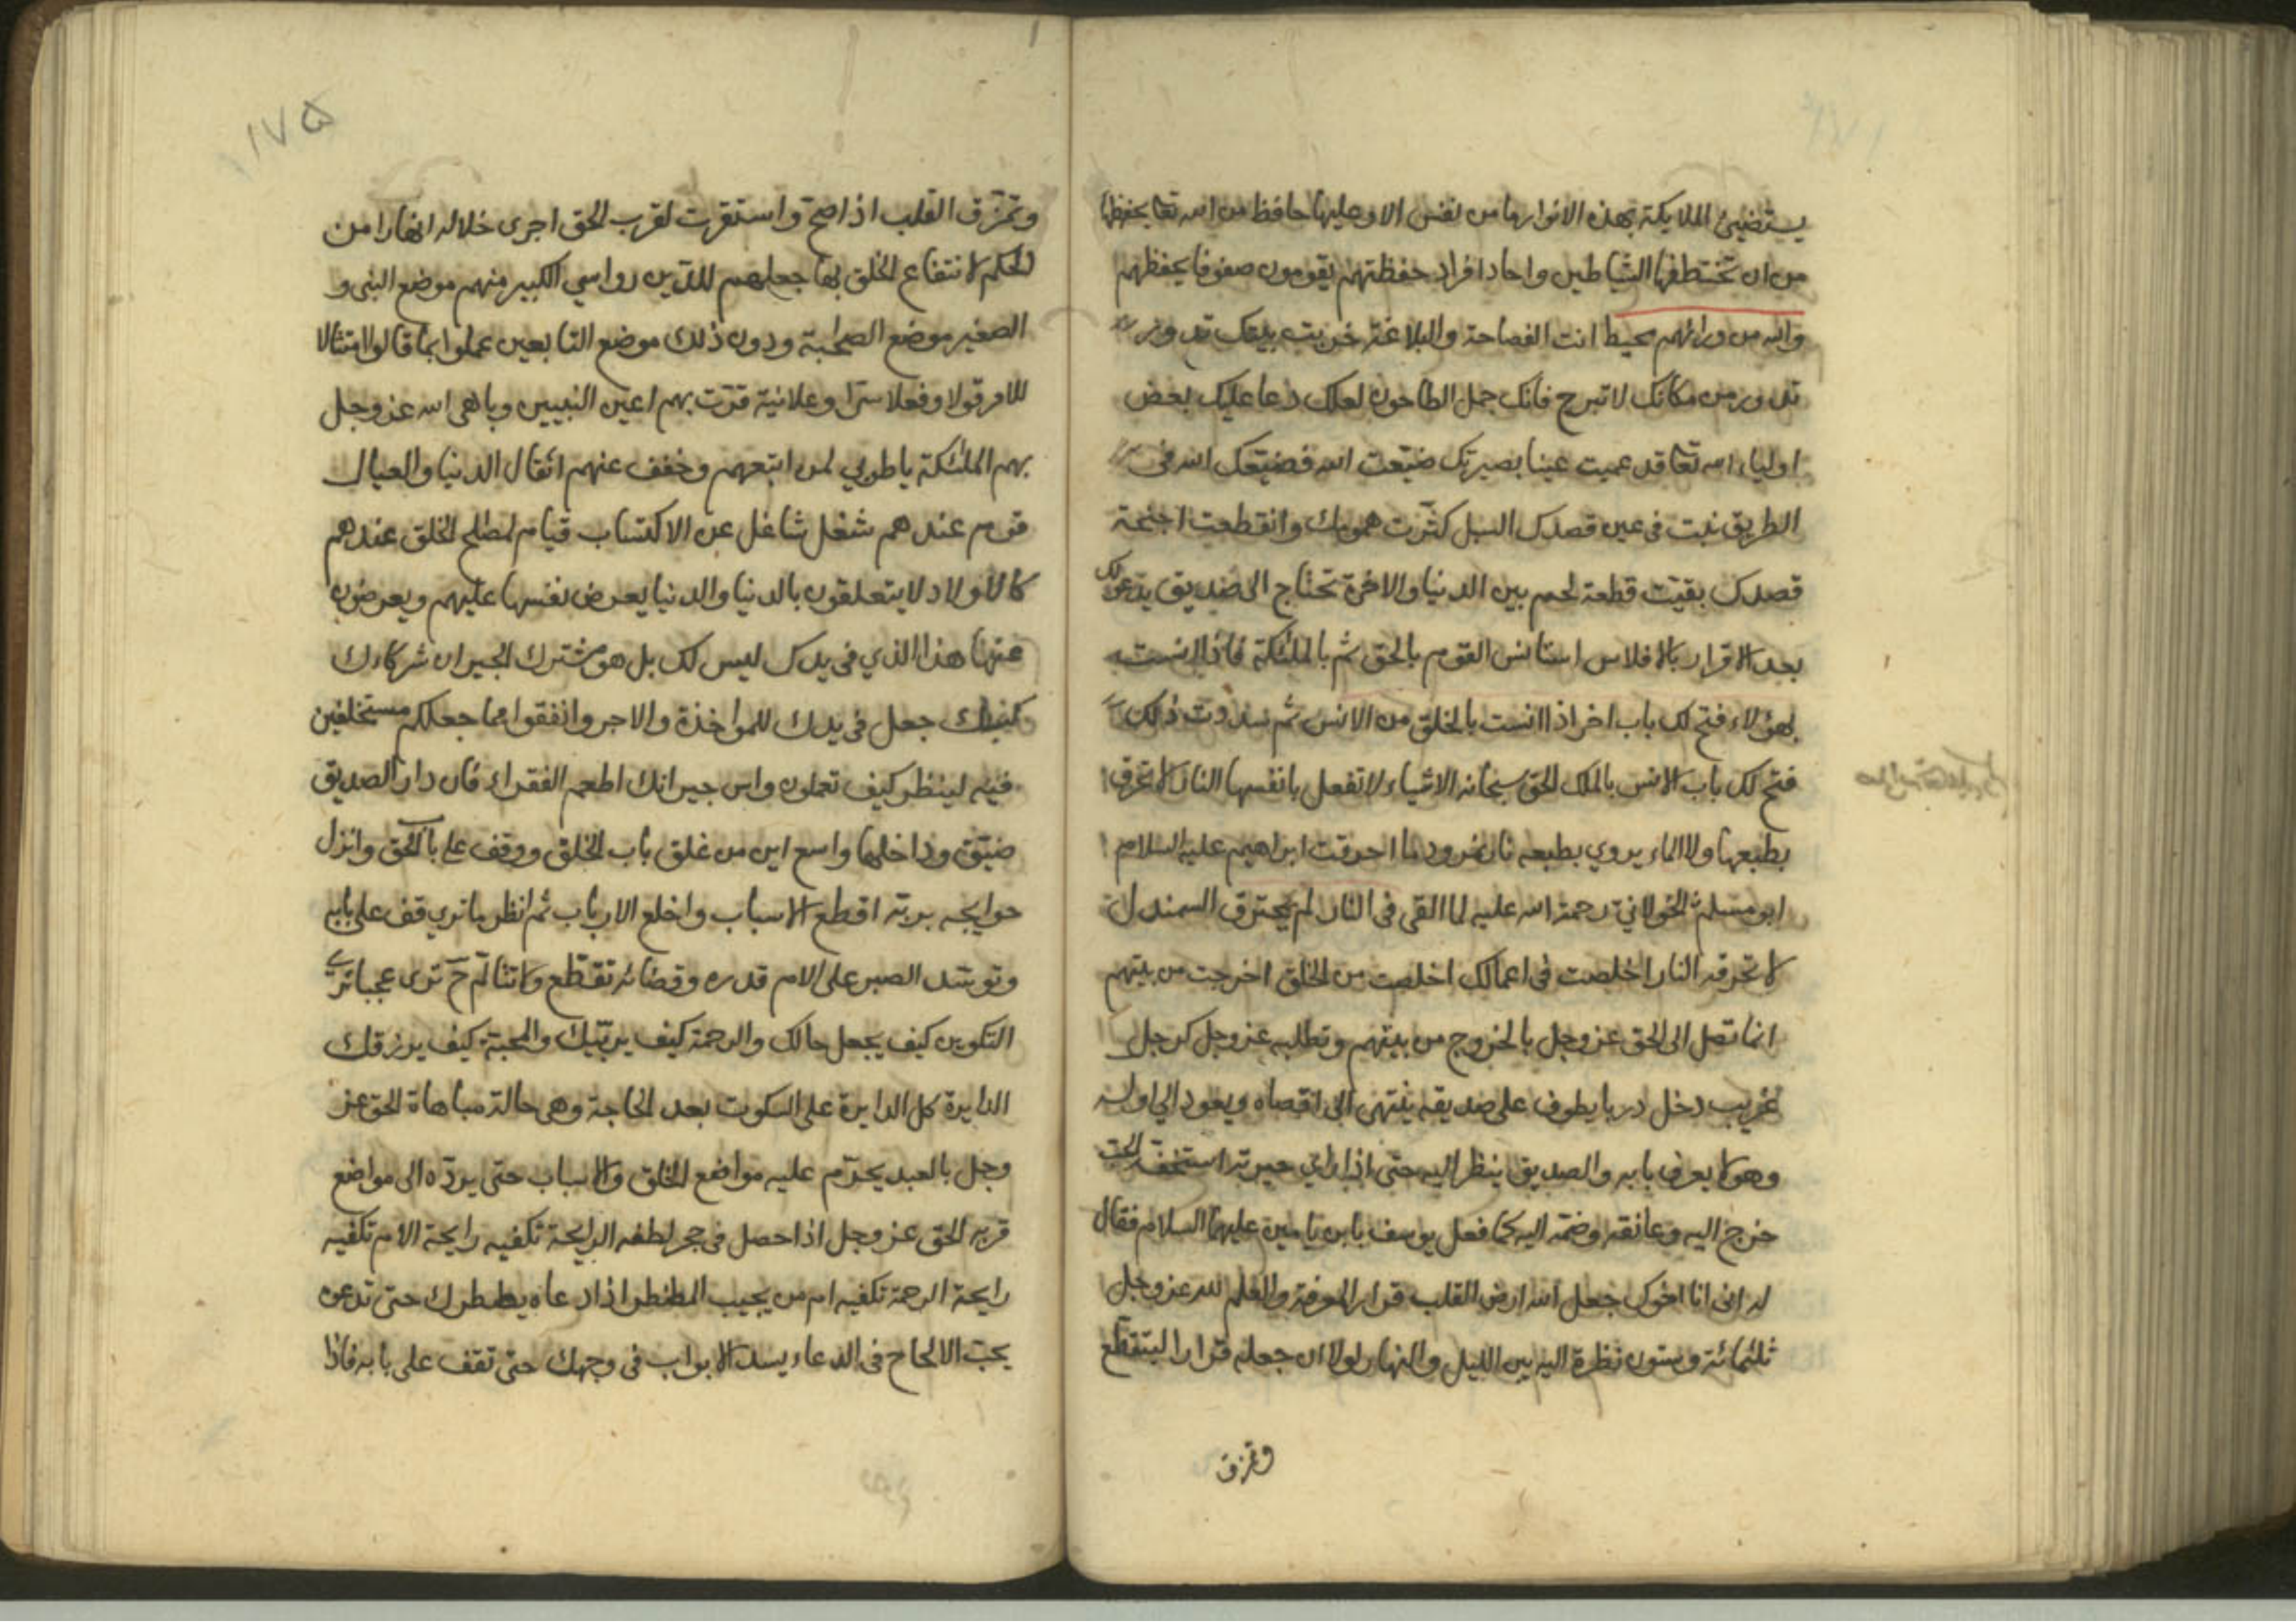 يستضيئ الملايكة بهذه الانوار وما من نفس الا وعليها حافظ من الله تعا يحفظها
من ان تختطفها الشياطين واحاد افراد حفظتهم يقومون صفوفا يحفظهم
والله من ورائهم محيط انت الفصاحة والبلاغة خربت بيتك تدور
تدور من مكانك لا تبرح فانك جمل الطاحون لعلك دعا عليك بعض
اولياء الله تعا قد عميت عينا بصيرتك ضيّعت الله فضيّعك الله في
الطريق نبت في عين قصدك السبل كثرت همومك وانقطعت اجنحة
قصدك بقيت قطعة لحم بين الدنيا والاخرة تحتاج الى صديق يدعو لك
بعد الاقرار بالافلاس استانس القوم بالحق ثم بالملئكة فاذا انست
بهؤلاء فتح لك باب اخر اذا انست بالخلق من الانس ثم سددت ذلك
فتح لك باب الانس بالملك الحق سبحانه الاشياء لا تفعل بانفسها النار لا تحرق
بطبعها ولا الماء يروي بطبعه نار نمرود ما احرقت ابراهيم عليه السلام
ابو مسلم الخولاني رحمة الله عليه لما القى في النار لم يحترق السمندل
لا تحرقه النار اخلصت في اعمالك اخلصت من الخلق اخرجت من بينهم
انما تصل الى الحق عز وجل بالخروج من بينهم وتطلبه عز وجل كرجل
غريب دخل دربا يطوف على صديقه ينتهى الى اقصاه ويعود الى اوله
وهو لا يعرف بابه والصديق ينظر اليه حتى اذا راي حيرته
خرج اليه وعانقه وضمه اليه كما فعل يوسف بابن يامين عليهما السلام فقال
له اني انا اخوك جعل الله ارض القلب قرار المعرفة والعلم لله عز وجل
ثلثمائة وستون نظرة اليه بين الليل والنهار لولا ان جعله قرارا لتقطع
وتمزق
١٧٥
وتمزق القلب اذا صح واستقرت لقرب الحق اجرى خلاله انهارا من
الحكم لانتفاع الخلق بها جعلهم للدين رواسي الكبير منهم موضع النبى و
الصغير موضع الصحابة ودون ذلك موضع التابعين عملوا بما قالوا امتثالا
للامر قولا وفعلا سرا وعلانية قرت بهم اعين النبيين وباهى الله عز وجل
بهم الملئكة يا طوبي لمن اتبعهم وخفف عنهم اثقال الدنيا والعيال
قوم عندهم شغل شاغل عن الاكتساب قيام لمصالح الخلق عندهم
كالاولاد لا يتعلقون بالدنيا والدنيا يعرض نفسها عليهم ويعرضون
عنها هذا الذي في يدك ليس لك بل هو مشترك الجيران شركاءك
جعل في يدك للمواخذة والاجر وانفقوا مما جعلكم مستخلفين
فيه لينظر كيف تعملون واس جيرانك اطعم الفقراء فان دار الصديق
ضيّق وداخلها واسع اين من غلق باب الخلق ووقف على باب الحق وانزل
حوايجه بربه اقطع الاسباب واخلع الارباب ثم انظر ما تري قف على بابه
الصبر على الام قدره وقضائه تقطع ترى عجبا
التكوين كيف يجعل حالك والرحمة كيف يربّيك والمحبة كيف يرزقك
الدايرة كل الدايرة على السكوت بعد الحاجة وهى حالة مباهاة الحق عز
وجل بالعبد يحرّم عليه مواضع الخلق والاسباب حتى يردّه الى مواضع
قربه الحق عز وجل اذا حصل في حجر لطفه الرايحة تكفيه رايحة الام تكفيه
رايحة الرحمة تكفيه ام من يجيب المضطر اذا دعاه يضطرك حتى تدعوه
يحبّ الالحاح في الدعاء يسد الابواب في وجهك حتى تقف على بابه فاذا